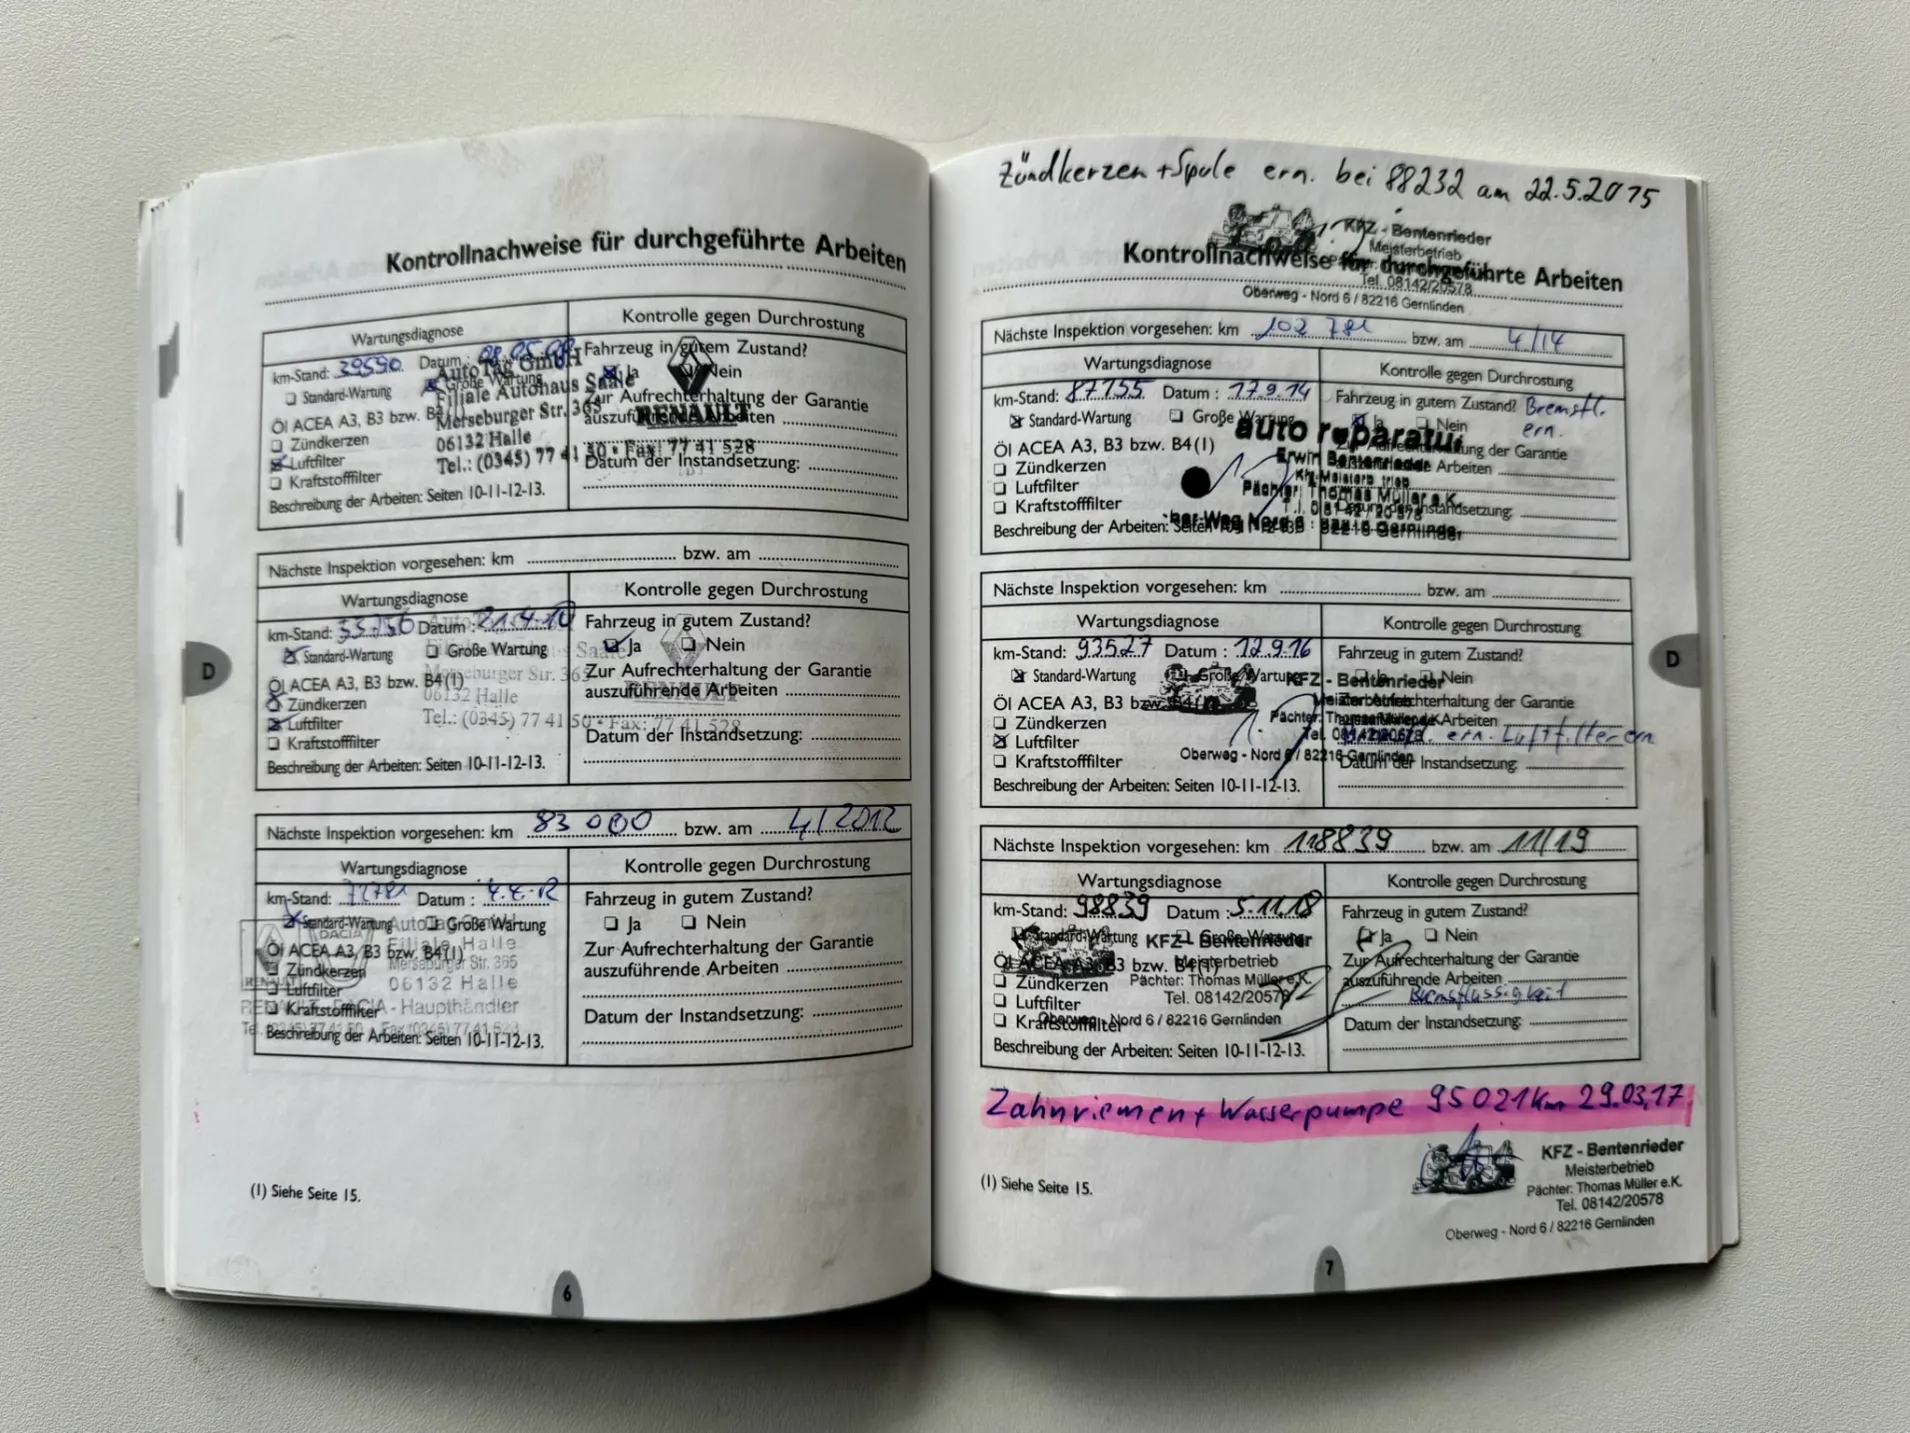 Kontrollnachweise für durchgeführte Arbeiten
Wartungsdiagnose
Kontrolle gegen Durchrostung
km-Stand: 39590 Datum: 08.05.08
Fahrzeug in gutem Zustand?
Standard-Wartung Große Wartung
Ja Nein
AutoTag GmbH
Filiale Autohaus Saale
Merseburger Str. 365
06132 Halle
Tel.: (0345) 77 41 50 • Fax: 77 41 528
RENAULT
Öl ACEA A3, B3 bzw. B4(1)
Zündkerzen
Luftfilter
Kraftstofffilter
Beschreibung der Arbeiten: Seiten 10-11-12-13.
Zur Aufrechterhaltung der Garantie
auszuführende Arbeiten
Datum der Instandsetzung:
Nächste Inspektion vorgesehen: km bzw. am
Wartungsdiagnose
Kontrolle gegen Durchrostung
km-Stand: Datum: 21.4.10
Fahrzeug in gutem Zustand?
Standard-Wartung Große Wartung
Ja Nein
Merseburger Str. 365
06132 Halle
Tel.: (0345) 77 41 50 • Fax: 77 41 528
RENAULT
Öl ACEA A3, B3 bzw. B4(1)
Zündkerzen
Luftfilter
Kraftstofffilter
Beschreibung der Arbeiten: Seiten 10-11-12-13.
Zur Aufrechterhaltung der Garantie
auszuführende Arbeiten
Datum der Instandsetzung:
Nächste Inspektion vorgesehen: km 83000 bzw. am 4/2012
Wartungsdiagnose
Kontrolle gegen Durchrostung
km-Stand: Datum:
Fahrzeug in gutem Zustand?
Standard-Wartung Große Wartung
Ja Nein
DACIA
Filiale Halle
Merseburger Str. 365
06132 Halle
RENAULT DACIA - Haupthändler
Öl ACEA A3, B3 bzw. B4(1)
Zündkerzen
Luftfilter
Kraftstofffilter
Beschreibung der Arbeiten: Seiten 10-11-12-13.
Zur Aufrechterhaltung der Garantie
auszuführende Arbeiten
Datum der Instandsetzung:
(1) Siehe Seite 15.
D
6
Zündkerzen + Spule ern. bei 88232 am 22.5.2015
KFZ - Bentenrieder
Meisterbetrieb
Tel. 08142/20578
Oberweg - Nord 6 / 82216 Gernlinden
Kontrollnachweise für durchgeführte Arbeiten
Nächste Inspektion vorgesehen: km 102 781 bzw. am 4/14
Wartungsdiagnose
Kontrolle gegen Durchrostung
km-Stand: 87155 Datum: 17.9.14
Fahrzeug in gutem Zustand? Bremsfl. ern.
Standard-Wartung Große Wartung
Ja Nein
auto reparatur
Erwin Bentenrieder
Pächter: Thomas Müller e.K.
Öl ACEA A3, B3 bzw. B4(1)
Zündkerzen
Luftfilter
Kraftstofffilter
Beschreibung der Arbeiten: Seiten 10-11-12-13.
Zur Aufrechterhaltung der Garantie
auszuführende Arbeiten
Datum der Instandsetzung:
Nächste Inspektion vorgesehen: km bzw. am
Wartungsdiagnose
Kontrolle gegen Durchrostung
km-Stand: 93527 Datum: 12.9.16
Fahrzeug in gutem Zustand?
Standard-Wartung Große Wartung
Ja Nein
KFZ - Bentenrieder
Meisterbetrieb
Pächter: Thomas Müller e.K.
Tel. 08142/20578
Oberweg - Nord 6 / 82216 Gernlinden
Öl ACEA A3, B3 bzw. B4(1)
Zündkerzen
Luftfilter
Kraftstofffilter
Beschreibung der Arbeiten: Seiten 10-11-12-13.
Zur Aufrechterhaltung der Garantie
auszuführende Arbeiten
ern. Luftfilter ern
Datum der Instandsetzung:
Nächste Inspektion vorgesehen: km 118839 bzw. am 11/19
Wartungsdiagnose
Kontrolle gegen Durchrostung
km-Stand: 98839 Datum: 5.11.18
Fahrzeug in gutem Zustand?
Standard-Wartung Große Wartung
Ja Nein
KFZ - Bentenrieder
Meisterbetrieb
Pächter: Thomas Müller e.K.
Tel. 08142/20578
Oberweg - Nord 6 / 82216 Gernlinden
Öl ACEA A3, B3 bzw. B4(1)
Zündkerzen
Luftfilter
Kraftstofffilter
Beschreibung der Arbeiten: Seiten 10-11-12-13.
Zur Aufrechterhaltung der Garantie
auszuführende Arbeiten
Bremsflüssigkeit
Datum der Instandsetzung:
Zahnriemen + Wasserpumpe 95021km 29.03.17
KFZ - Bentenrieder
Meisterbetrieb
Pächter: Thomas Müller e.K.
Tel. 08142/20578
Oberweg - Nord 6 / 82216 Gernlinden
(1) Siehe Seite 15.
D
7